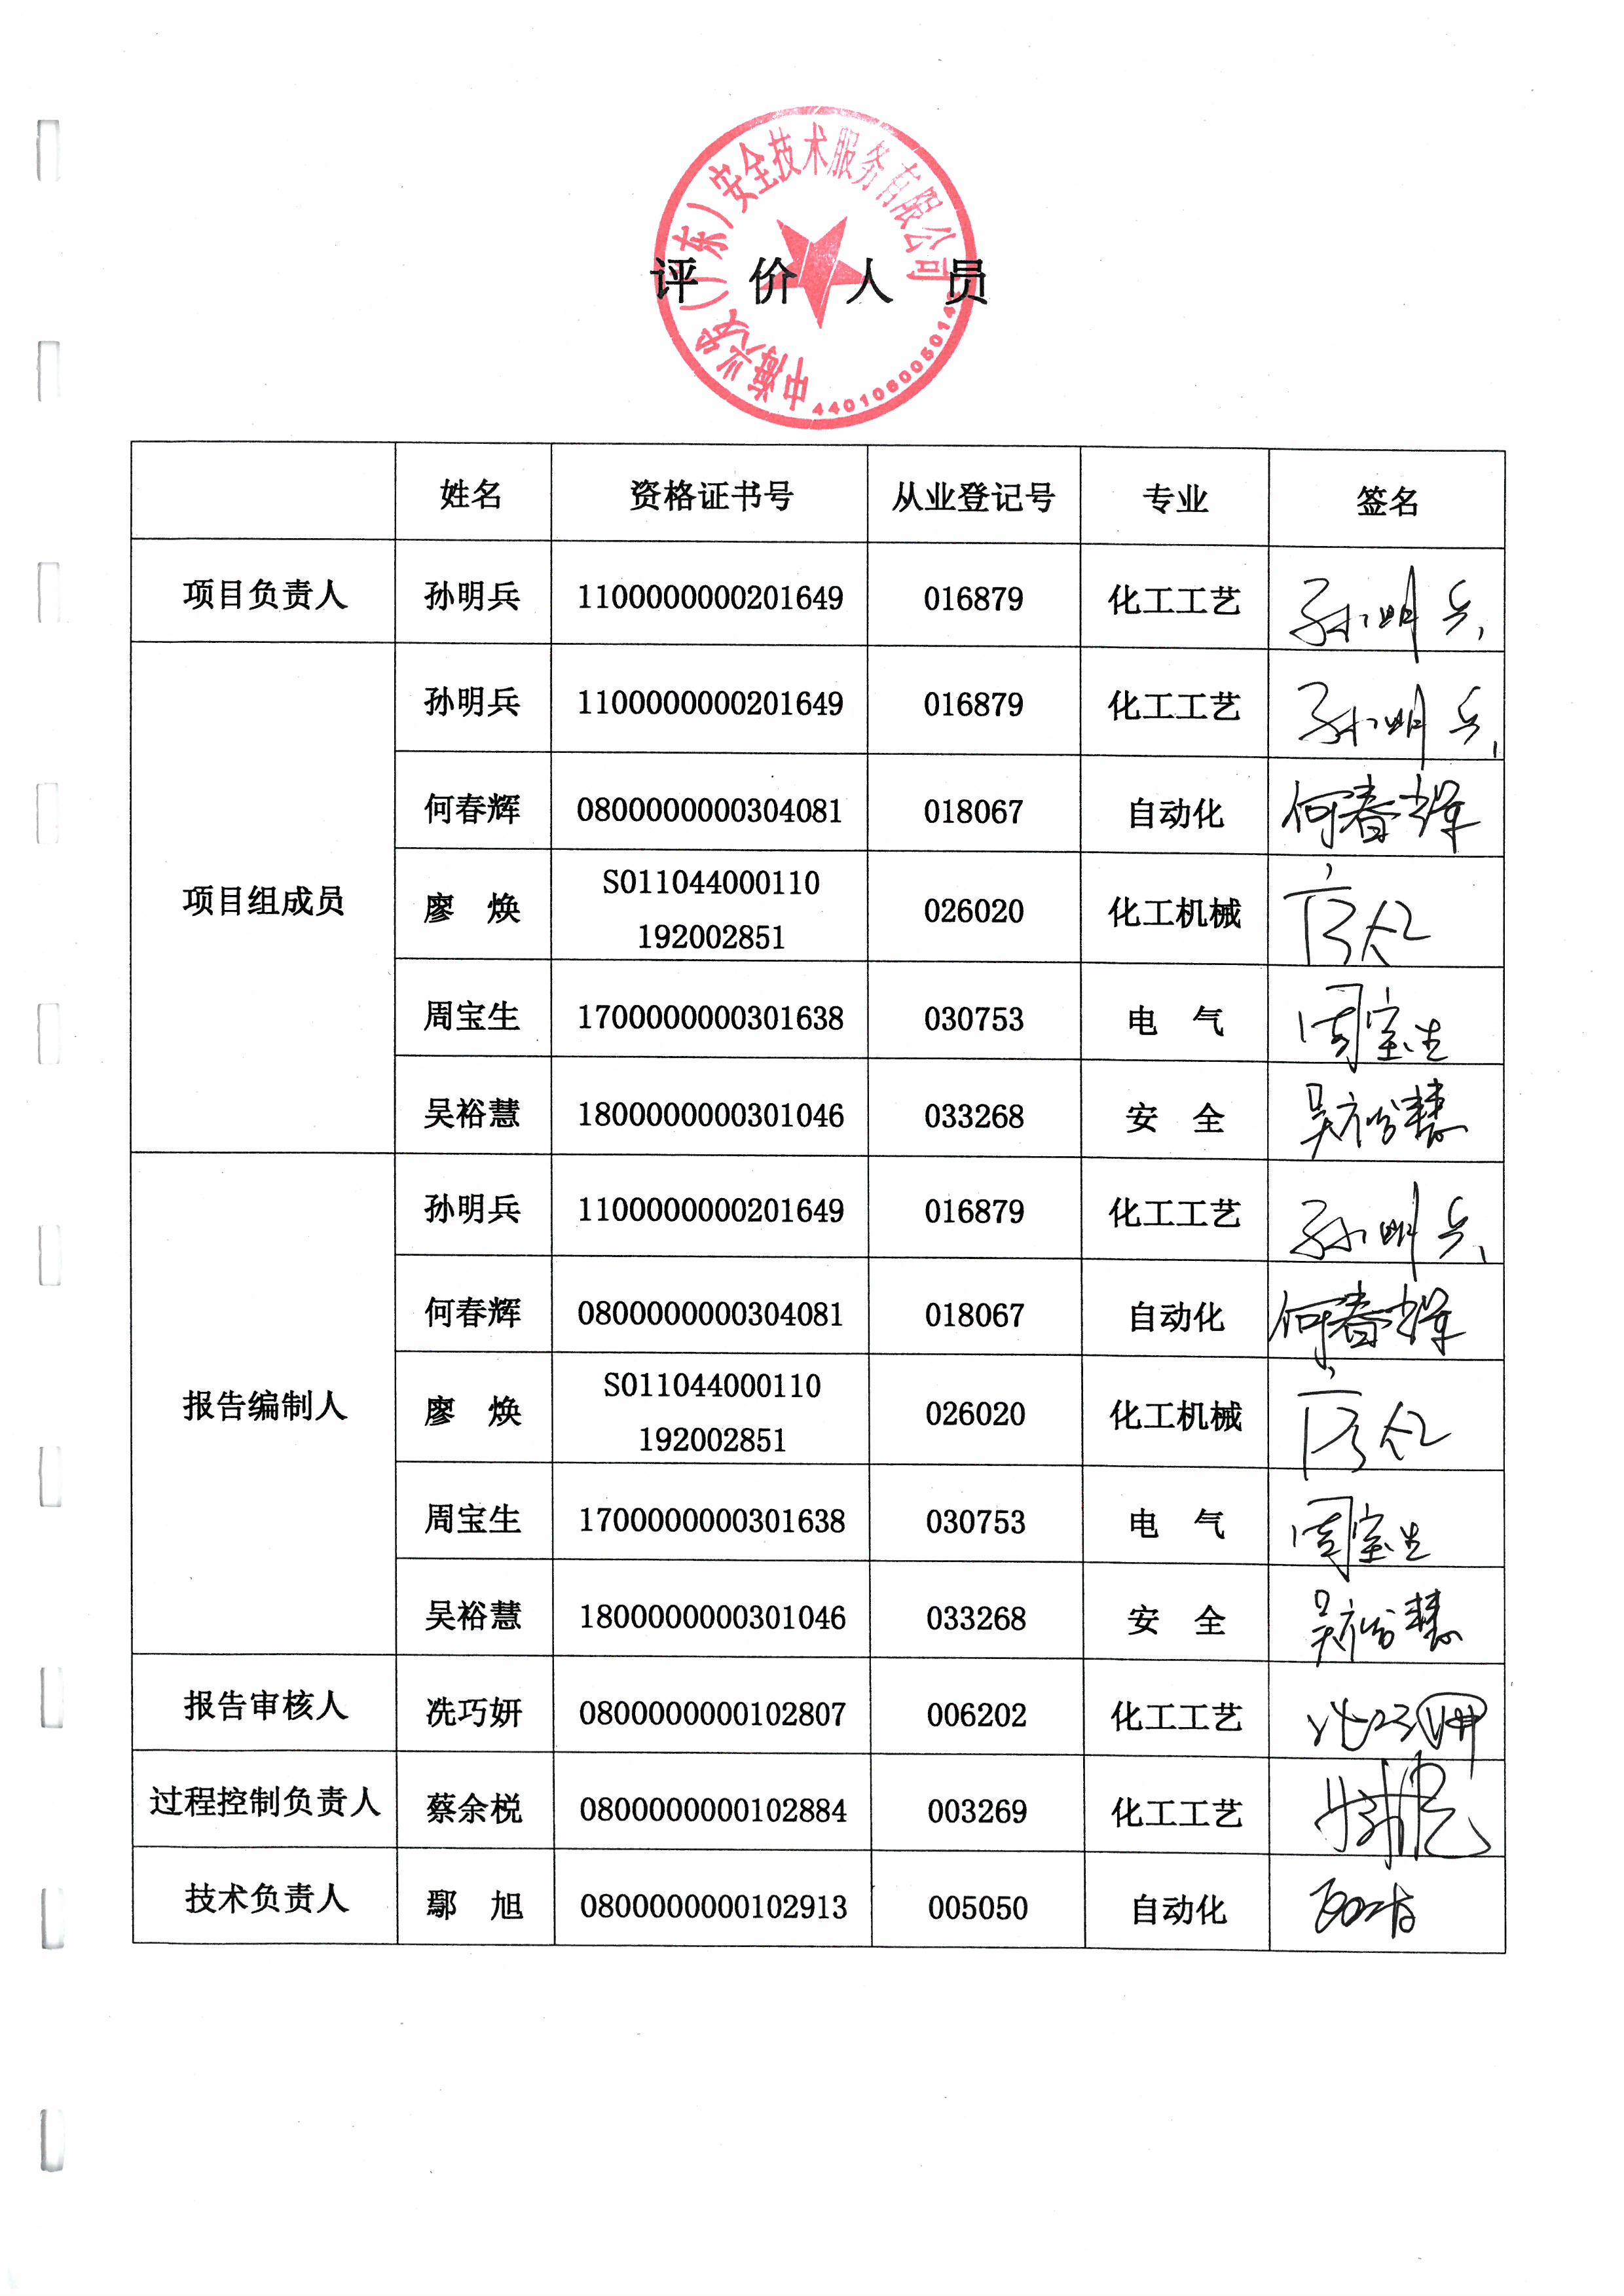 中海兴发（广东）安全技术服务有限公司
评价人员
姓名 资格证书号 从业登记号 专业 签名
项目负责人 孙明兵 1100000000201649 016879 化工工艺 孙明兵
项目组成员 孙明兵 1100000000201649 016879 化工工艺 孙明兵
何春辉 0800000000304081 018067 自动化 何春辉
廖 焕 S011044000110 192002851 026020 化工机械
周宝生 1700000000301638 030753 电 气 周宝生
吴裕慧 1800000000301046 033268 安 全 吴裕慧
报告编制人 孙明兵 1100000000201649 016879 化工工艺 孙明兵
何春辉 0800000000304081 018067 自动化 何春辉
廖 焕 S011044000110 192002851 026020 化工机械
周宝生 1700000000301638 030753 电 气 周宝生
吴裕慧 1800000000301046 033268 安 全 吴裕慧
报告审核人 冼巧妍 0800000000102807 006202 化工工艺
过程控制负责人 蔡余棁 0800000000102884 003269 化工工艺
技术负责人 鄢 旭 0800000000102913 005050 自动化